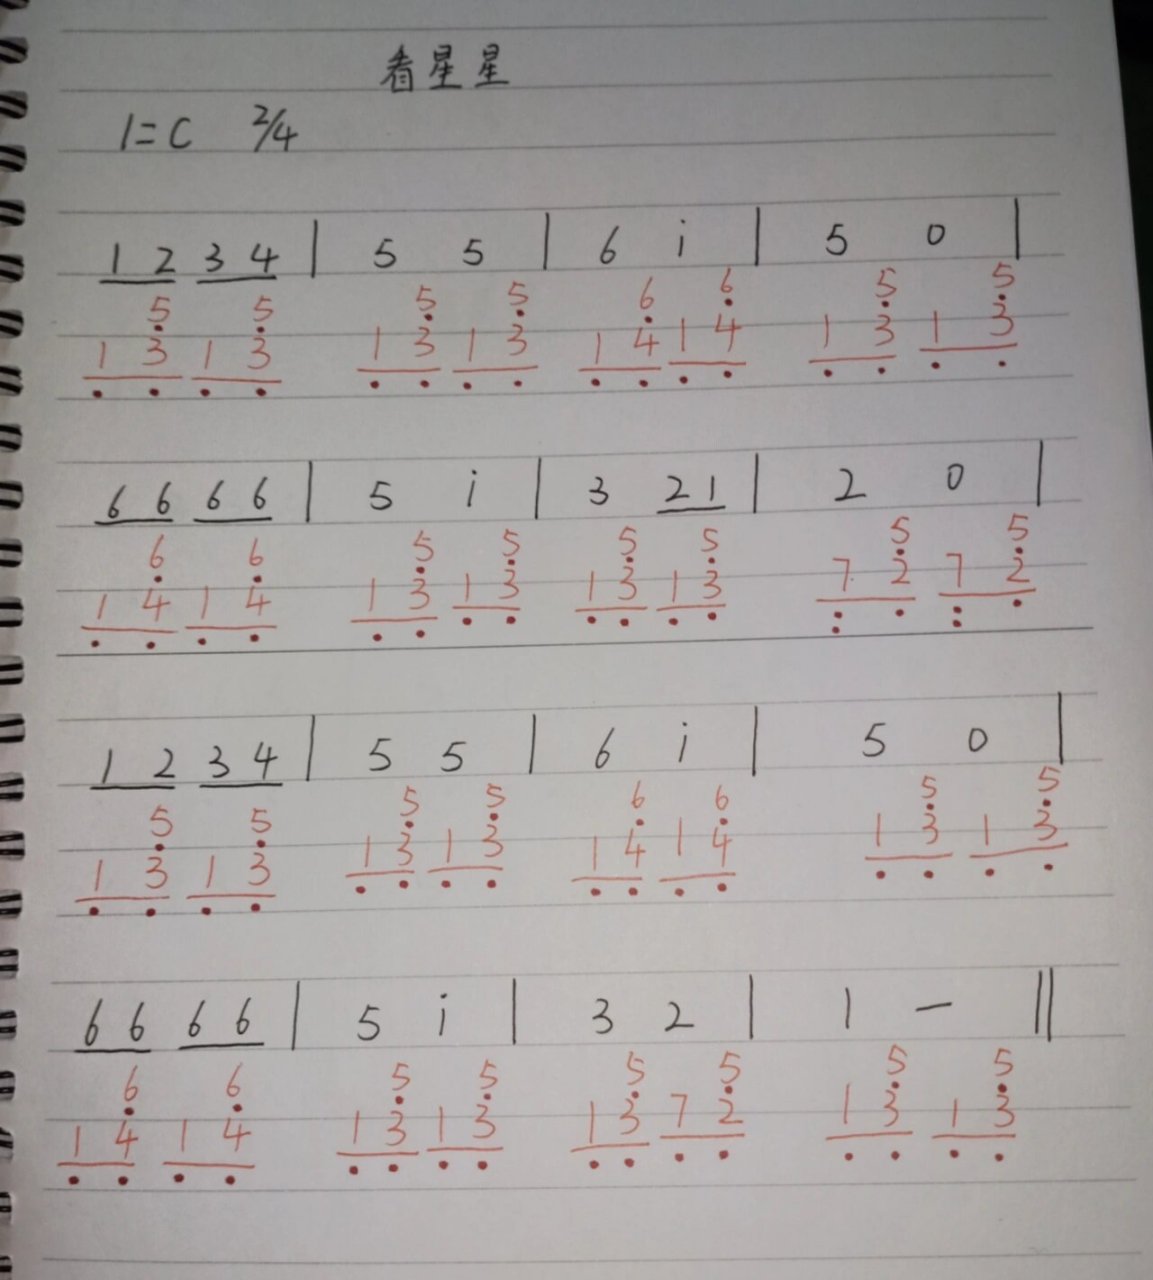 看星星
1=C 2/4
1 2 3 4 | 5 5 | 6 i | 5 0 |
5 5 5 5 6 6 5 5
1 3 1 3 1 3 1 3 1 4 1 4 1 3 1 3
6 6 6 6 | 5 i | 3 2 1 | 2 0 |
6 6 5 5 5 5 5 5
1 4 1 4 1 3 1 3 1 3 1 3 7 2 7 2
1 2 3 4 | 5 5 | 6 i | 5 0 |
5 5 5 5 6 6 5 5
1 3 1 3 1 3 1 3 1 4 1 4 1 3 1 3
6 6 6 6 | 5 i | 3 2 | 1 — ||
6 6 5 5 5 5 5 5
1 4 1 4 1 3 1 3 1 3 7 2 1 3 1 3